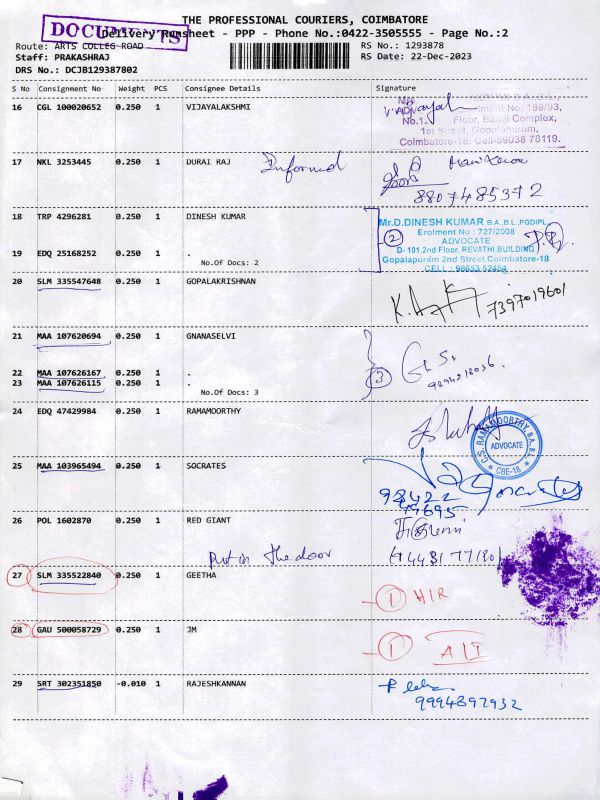 THE PROFESSIONAL COURIERS, COIMBATORE
DOCUMENTS
Delivery Runsheet - PPP - Phone No.:0422-3505555 - Page No.:2
Route: ARTS COLLEG ROAD
RS No.: 1293878
Staff: PRAKASHRAJ
RS Date: 22-Dec-2023
DRS No.: DCJB129387802
S No Consignment No Weight PCS Consignee Details Signature
16 CGL 100020652 0.250 1 VIJAYALAKSHMI
lment No: 189/93,
Floor, Balaji Complex,
1st Street, Gopalapuram,
Coimbatore-18. Cell-89038 78119.
17 NKL 3253445 0.250 1 DURAI RAJ Informed
8807485372
18 TRP 4296281 0.250 1 DINESH KUMAR
Mr.D.DINESH KUMAR B.A.,B.L.,PGDIPL
Erolment No : 727/2008
ADVOCATE
2
D- 101,2nd Floor, REVATHI BUILDING
Gopalapuram 2nd Street,Coimbatore-18
CELL : 98653 52484
19 EDQ 25168252 0.250 1 .
No.Of Docs: 2
20 SLM 335547648 0.250 1 GOPALAKRISHNAN
7397019601
21 MAA 107620694 0.250 1 GNANASELVI
G.S.
3
22 MAA 107626167 0.250 1 .
23 MAA 107626115 0.250 1 .
No.Of Docs: 3
24 EDQ 47429984 0.250 1 RAMAMOORTHY
C.S. RAMAMOORTHY, B.A., B.L.
ADVOCATE
CBE-18
25 MAA 103965494 0.250 1 SOCRATES
98422
26 POL 1602870 0.250 1 RED GIANT
Put in the door
27 SLM 335522840 0.250 1 GEETHA
1 H/R
28 GAU 500058729 0.250 1 JM
1
29 SRT 302351850 -0.010 1 RAJESHKANNAN
9994897932